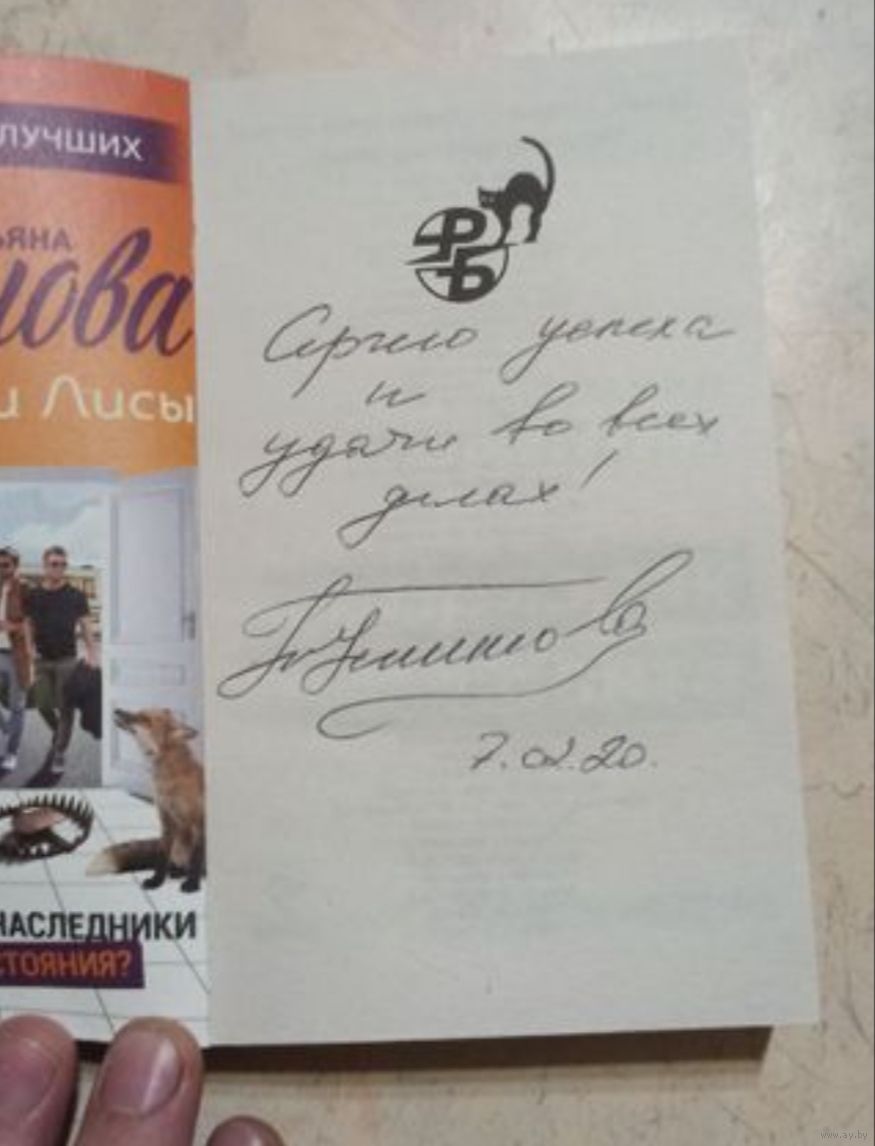 ЛУЧШИХ
ЬЯНА
нова
и Лисы
НАСЛЕДНИКИ
СТОЯНИЯ?
РБ
Сергею успеха
и
удачи во всех
делах!
7.02.20.
www.ay.by